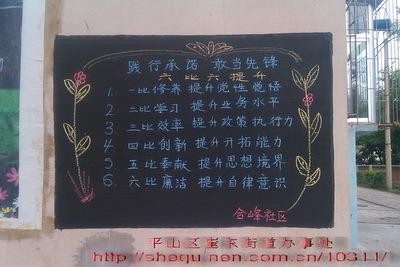 践行承诺 敢当先锋
六比六提升
1. 一比修养 提升党性觉悟
2. 二比学习 提升业务水平
3. 三比效率 提升政策执行力
4. 四比创新 提升开拓能力
5. 五比奉献 提升思想境界
6. 六比廉洁 提升自律意识
合峰社区
平山区崔东街道办事处
http://shequ.nen.com.cn/10311/